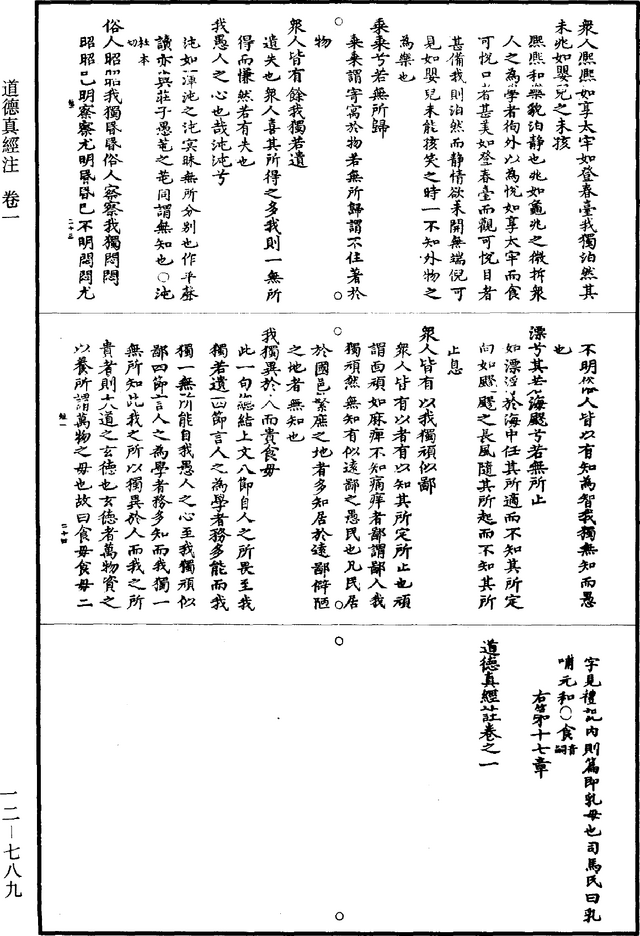 道德真經注　卷一
衆人熈熈如享太牢如登春臺我獨泊然其
未兆如嬰兒之未孩
熈熈和樂貌泊静也兆如龜兆之微拆衆
人之為學者徇外以為悅如享太牢而食
可悅口者甚美如登春臺而觀可悅目者
甚備我則泊然而静情欲未開無端倪可
見如嬰兒未能孩笑之時一不知外物之
為樂也
乘乘兮若無所歸
乘乘謂寄寓於物若無所歸謂不住著於
物
衆人皆有餘我獨若遺
遺失也衆人喜其所得之多我則一無所
得而慊然若有失也
我愚人之心也哉沌沌兮
沌如渾沌之沌冥昧無所分別也作平聲
讀亦與莊子愚芚之芚同謂無知也〇沌
杜本切
俗人昭昭我獨昏昏俗人察察我獨悶悶
昭昭已明察察尤明昏昏已不明悶悶尤
二十三
不明俗人皆以有知為智我獨無知而愚
也
漂兮其若海飂兮若無所止
如漂浮於海中任其所適而不知其所定
向如飂飂之長風隨其所起而不知其所
止息
衆人皆有以我獨頑似鄙
衆人皆有以者有以知其所定所止也頑
謂面頑如麻痺不知痛痒者鄙謂鄙人我
獨頑然無知有似遠鄙之愚民也凡民居
於國邑繁庶之地者多知居於遠鄙僻陋
之地者無知也
我獨異於人而貴食母
此一句總結上文八節自人之所畏至我
獨若遺四節言人之為學者務多能而我
獨一無所能自我愚人之心至我獨頑似
鄙四節言人之為學者務多知而我獨一
無所知此我之所以獨異於人而我之所
貴者則大道之玄德也玄德者萬物資之
以養所謂萬物之母也故曰食母食母二
二十四
字見禮記内則篇即乳母也司馬氏曰乳
哺元和〇食音嗣
右第十七章
道德真經註卷之一
一二—七八九